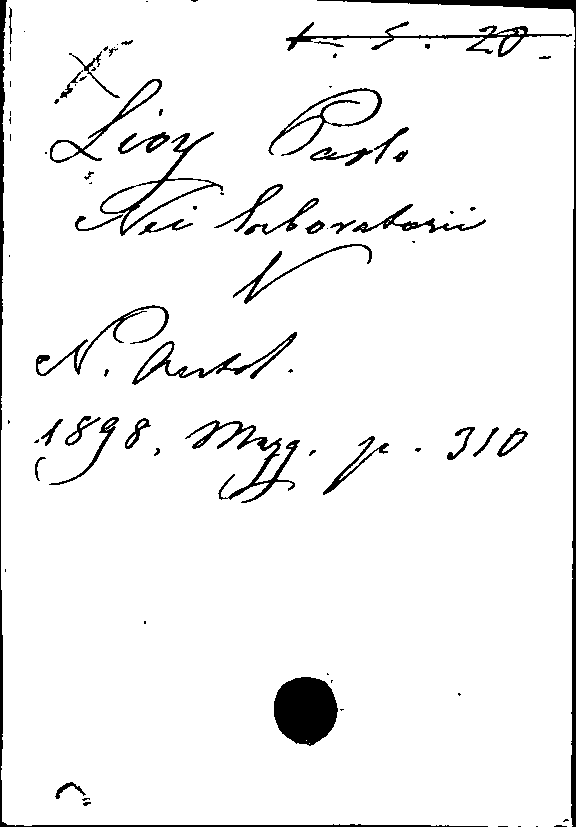 K. S. 20
Lioy Paolo
Nei laboratorii
V
N. Antol.
1898, Magg. p. 310